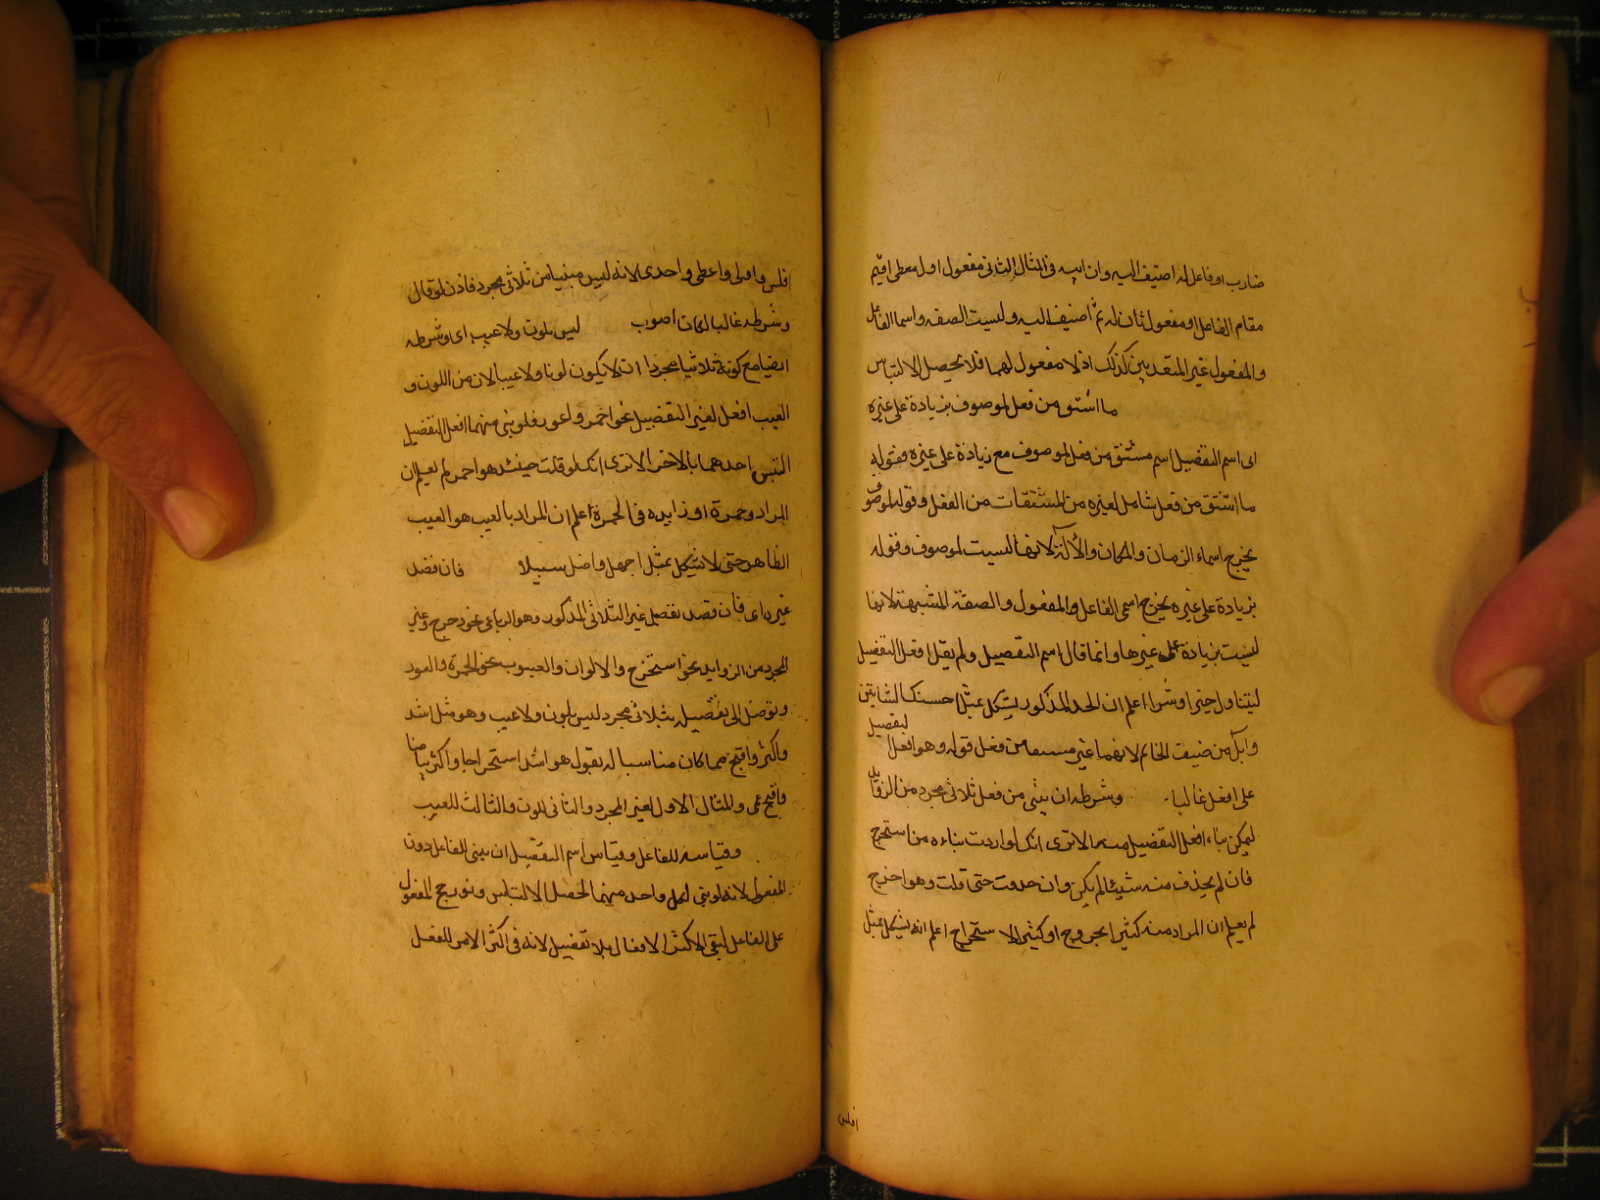 ضارب او فاعل له اضيف اليه وان ابيه فى المثال الثانى مفعول اول معطى اقيم
مقام الفاعل او مفعول ثان له ثم اضيف اليه وليست الصفه واسما الفاعل
والمفعول غير المتعديين كذلك اذ لا مفعول لهما فلا يحصل الالتباس
ما اشتق من فعل لموصوف بزيادة على غيره
اى اسم التفضيل اسم مشتق من فعل لموصوف مع زيادة على غيره فقوله
ما اشتق من فعل شامل لغيره من المشتقات من الفعل وقوله لموصوف
يخرج اسماء الزمان والمكان والألة لانها ليست لموصوف وقوله
بزيادة على غيره يخرج اسمى الفاعل والمفعول والصفة المشبهة لانها
ليست بزيادة على غيرها وانما قال اسم التفضيل ولم يقل افعل التفضيل
ليتناول خيرا وشرا اعلم ان الحد المذكور يشكل بمثل احسنك الشاتين
وابل من ضيف الخاتم لانهما غير مستقا من فعل قوله وهو افعل لتفضيل
على افعل غالبا وشرطه ان يبنى من فعل ثلاثى مجرد من الزوائد
ليمكن بناء افعل التفضيل منه الا ترى انك لو اردت بناءه من استخرج
فان لم يحذف منه شيئا لم يكن وان حذفت حتى قلت وهو اخرج
لم يعلم ان المراد منه كثير الخروج او كثير الاستخراج اعلم انه يشكل بمثل
افلس
افلس واولى واعطى واحدى لانه ليس مبنيا من ثلاثى مجرد فاذن لو قال
وشرطه غالبا لكان اصوب ليس بلون ولا عيب اى وشرطه
ايضا مع كونه ثلاثيا مجردا ان لا يكون لونا ولا عيبا لان من اللون و
العيب افعل لغير التفضيل نحو احمر واعور فلو بنى منهما افعل التفضيل
التبس احدهما بالاخر الا ترى انك لو قلت حينئذ هو احمر لم يعلم ان
المراد ذو حمرة او زايده فى الحمرة اعلم ان المراد بالعيب هو العيب
الظاهر حتى لا يشكل بمثل اجهل واضل سبيلا فان قصد
غيره اى فان قصد تفضيل غير الثلاثى المذكور وهو الرباعى نحو دحرج وغير
المجرد من الزوايد نحو استخرج والالوان والعيوب نحو الحمرة والعور
وتوصل الى تفضيله بثلاثى مجرد ليس بلون ولا عيب وهو مثل اشد
واكثر واقبح مما كان مناسبا له تقول هو اشد استخراجا واكثر بياضا
واقبح عمى والمثال الاول لغير المجرد والثانى للون والثالث للعيب
وقياسه للفاعل وقياس اسم التفضيل ان يبنى للفاعل دون
المفعول لانه لو بنى لكل واحد منهما لحصل الالتباس ونو رجح المفعول
على الفاعل لبقى الاكثر الافعال بلا تفضيل لانه فى اكثر الامر للفعل